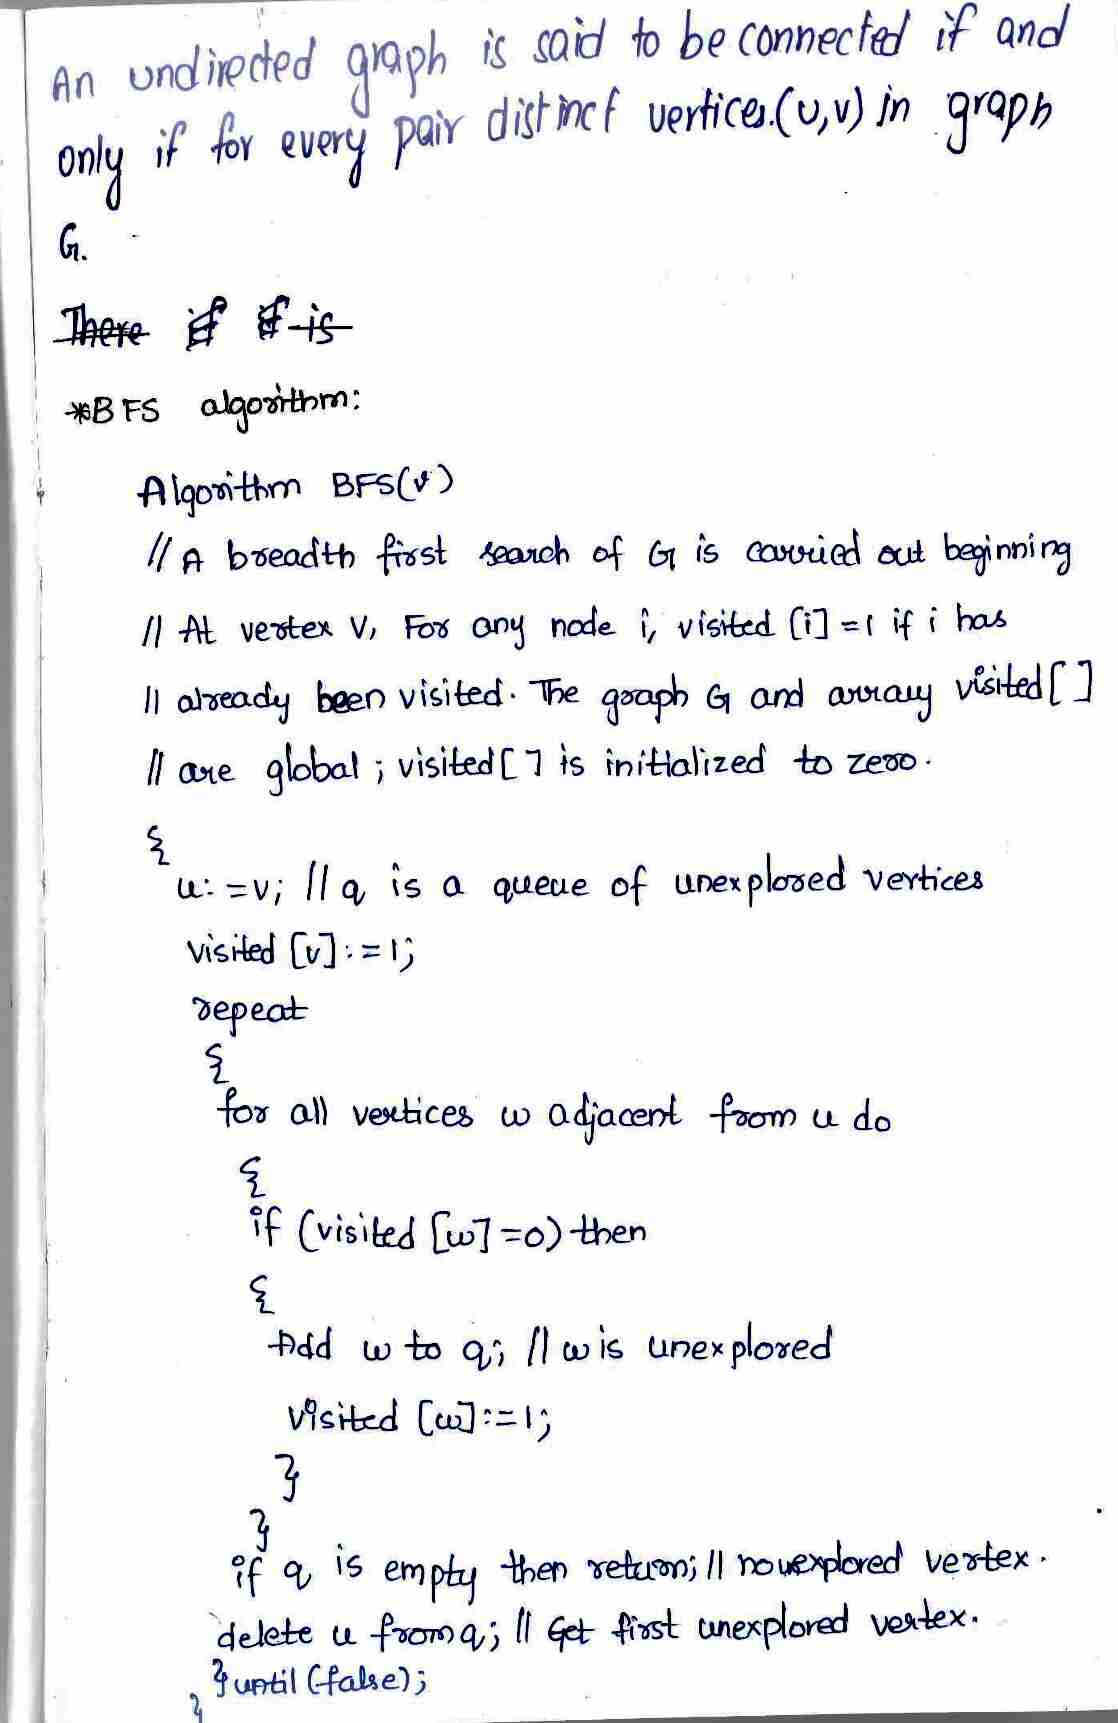 An undirected graph is said to be connected if and
only if for every pair distinct vertices.(u,v) in graph
G.
There if if is
*BFS algorithm:
Algorithm BFS(v)
// A breadth first search of G is carried out beginning
// At vertex V, For any node i, visited [i] =1 if i has
// already been visited. The graph G and array visited[ ]
// are global ; visited[ ] is initialized to zero.
{
u: =v; // q is a queue of unexplored vertices
visited [v] := 1;
repeat
{
for all vertices w adjacent from u do
{
if (visited [w] =0) then
{
Add w to q; // w is unexplored
visited [w] := 1;
}
}
if q is empty then return; // no uexplored vertex.
delete u from q; // Get first unexplored vertex.
} until (false);
}